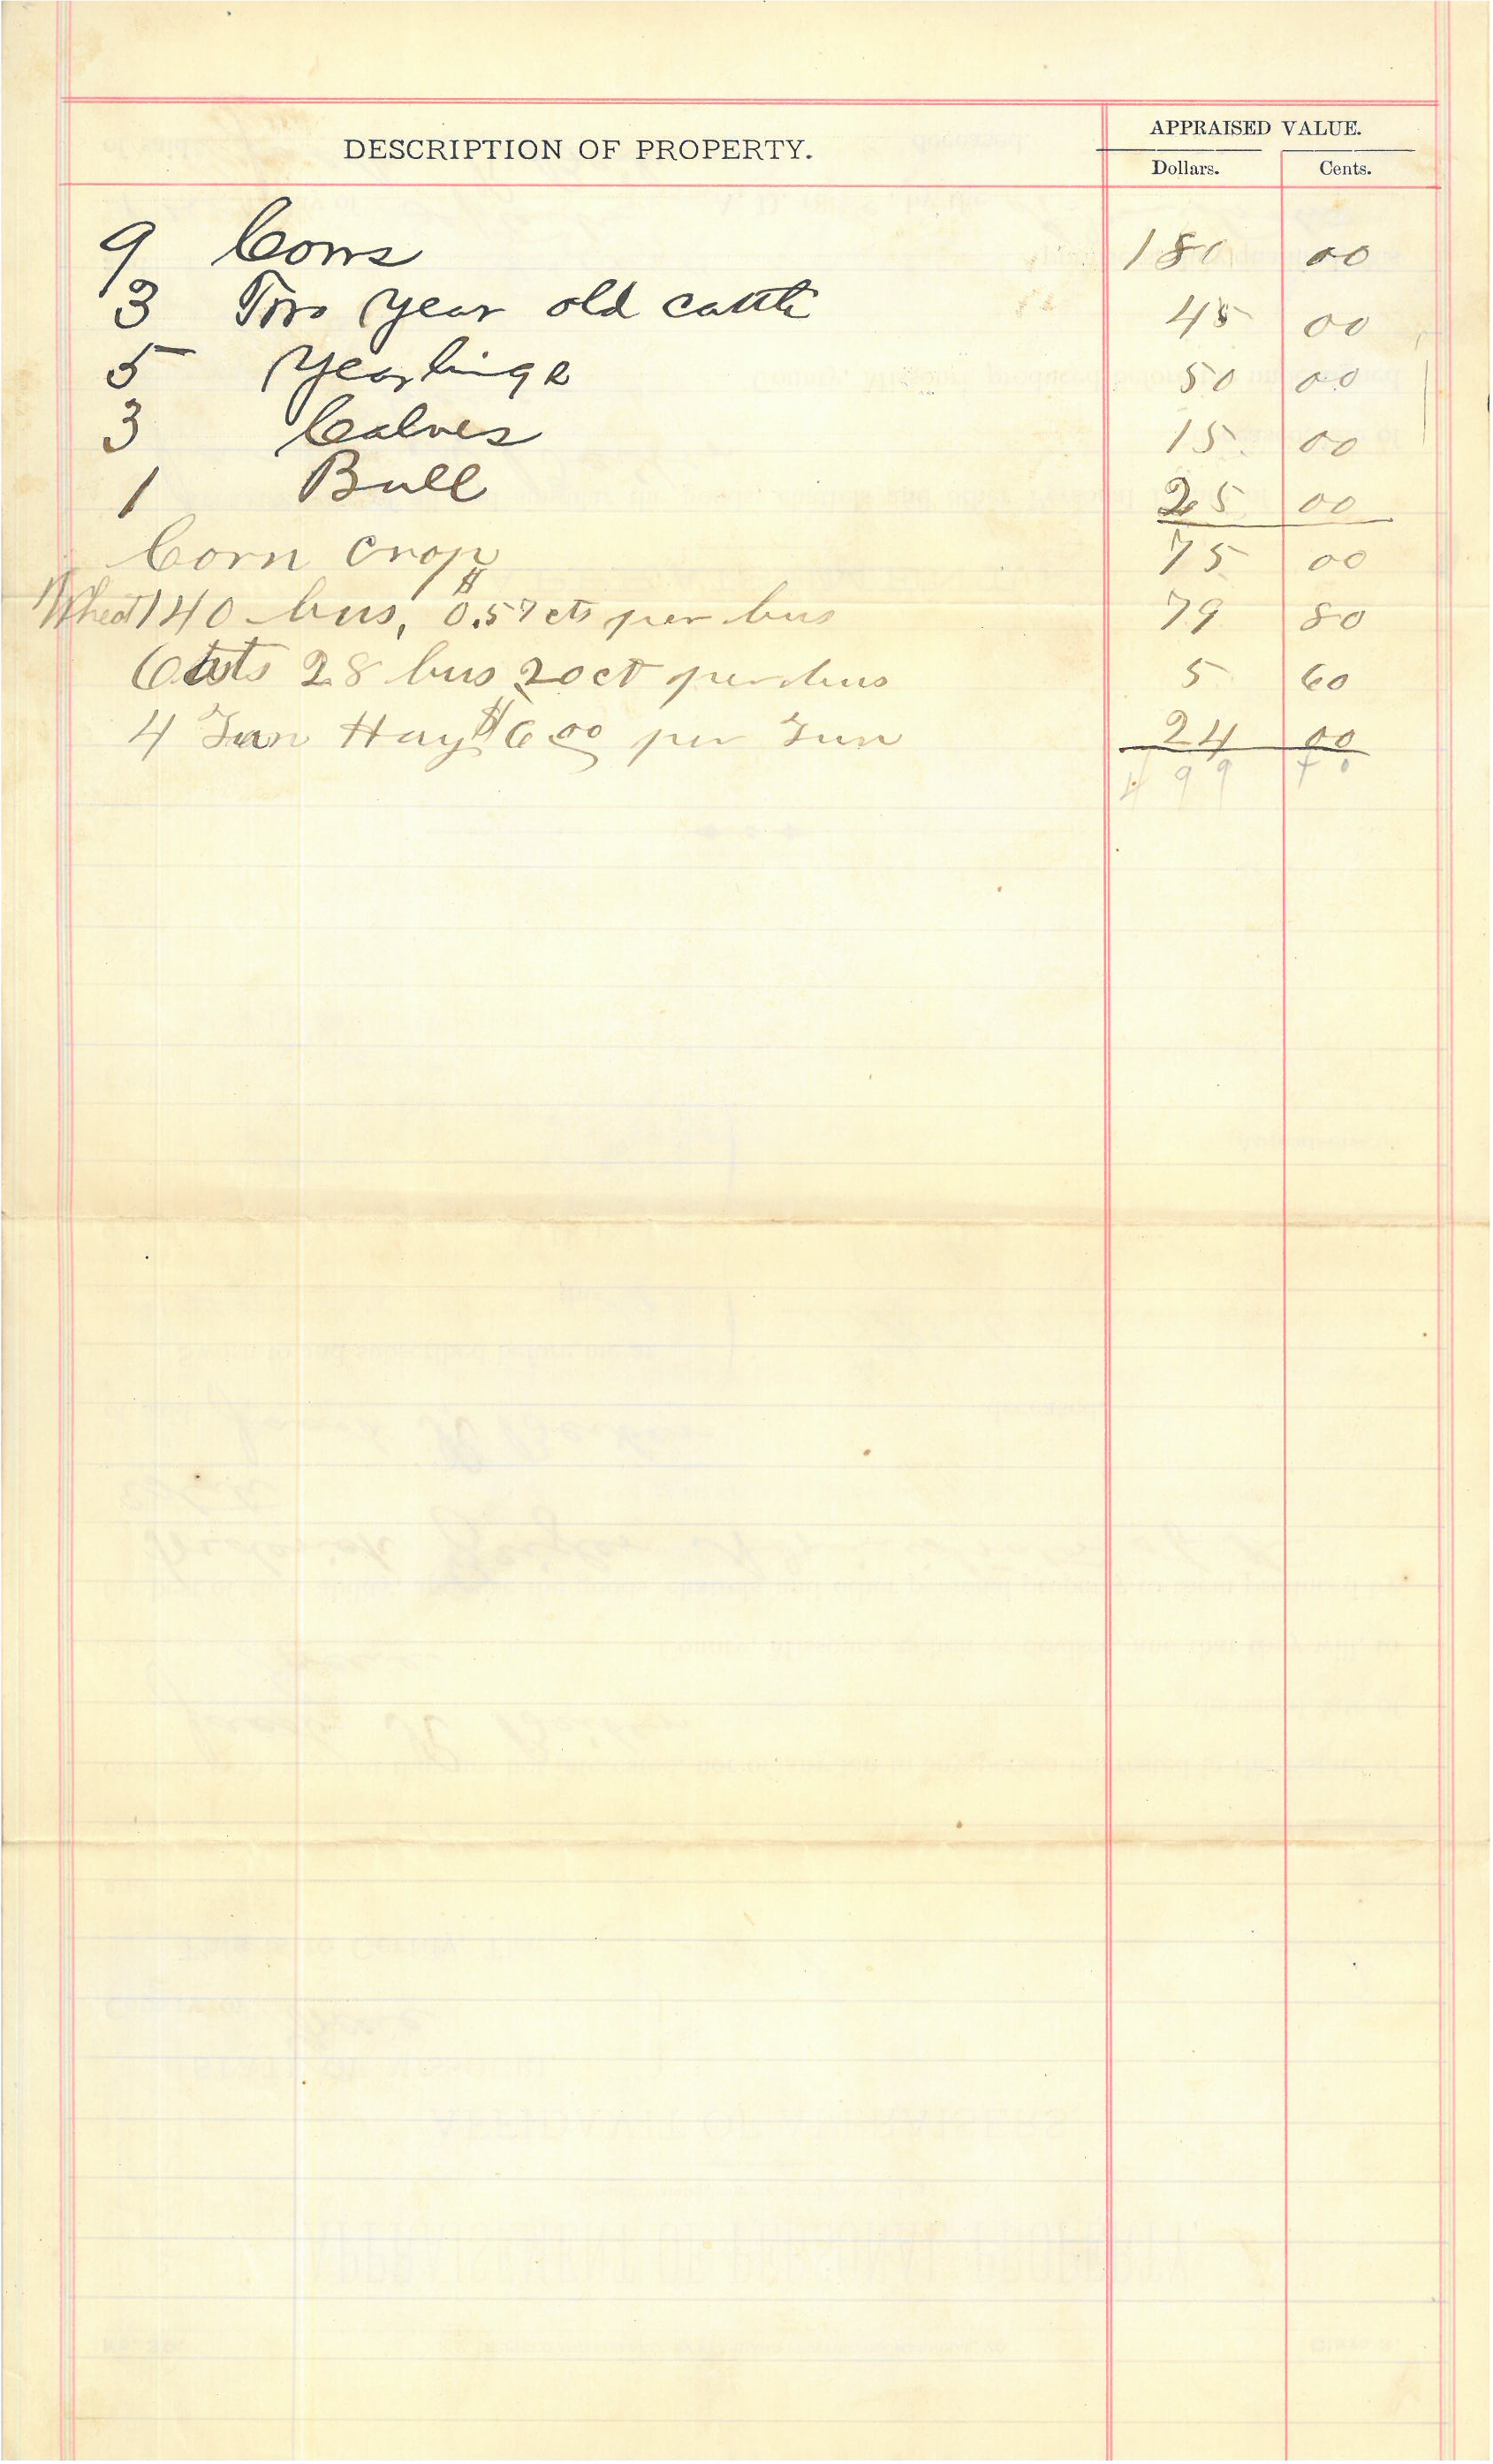 DESCRIPTION OF PROPERTY.
APPRAISED VALUE.
Dollars. Cents.
9 Cows 180 00
3 Two year old cattle 45 00
5 Yearlings 50 00
3 Calves 15 00
1 Bull 25 00
Corn crop 75 00
Wheat 140 bus, $0.57 cts per bus 79 80
Oats 28 bus 20 ct per bus 5 60
4 Tun Hay $6 00 per Tun 24 00
499 40